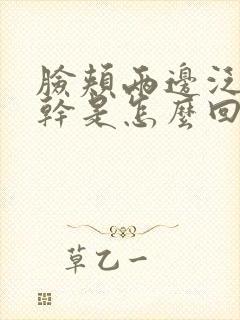 臉頰兩邊泛
幹是怎麼回
草乙一